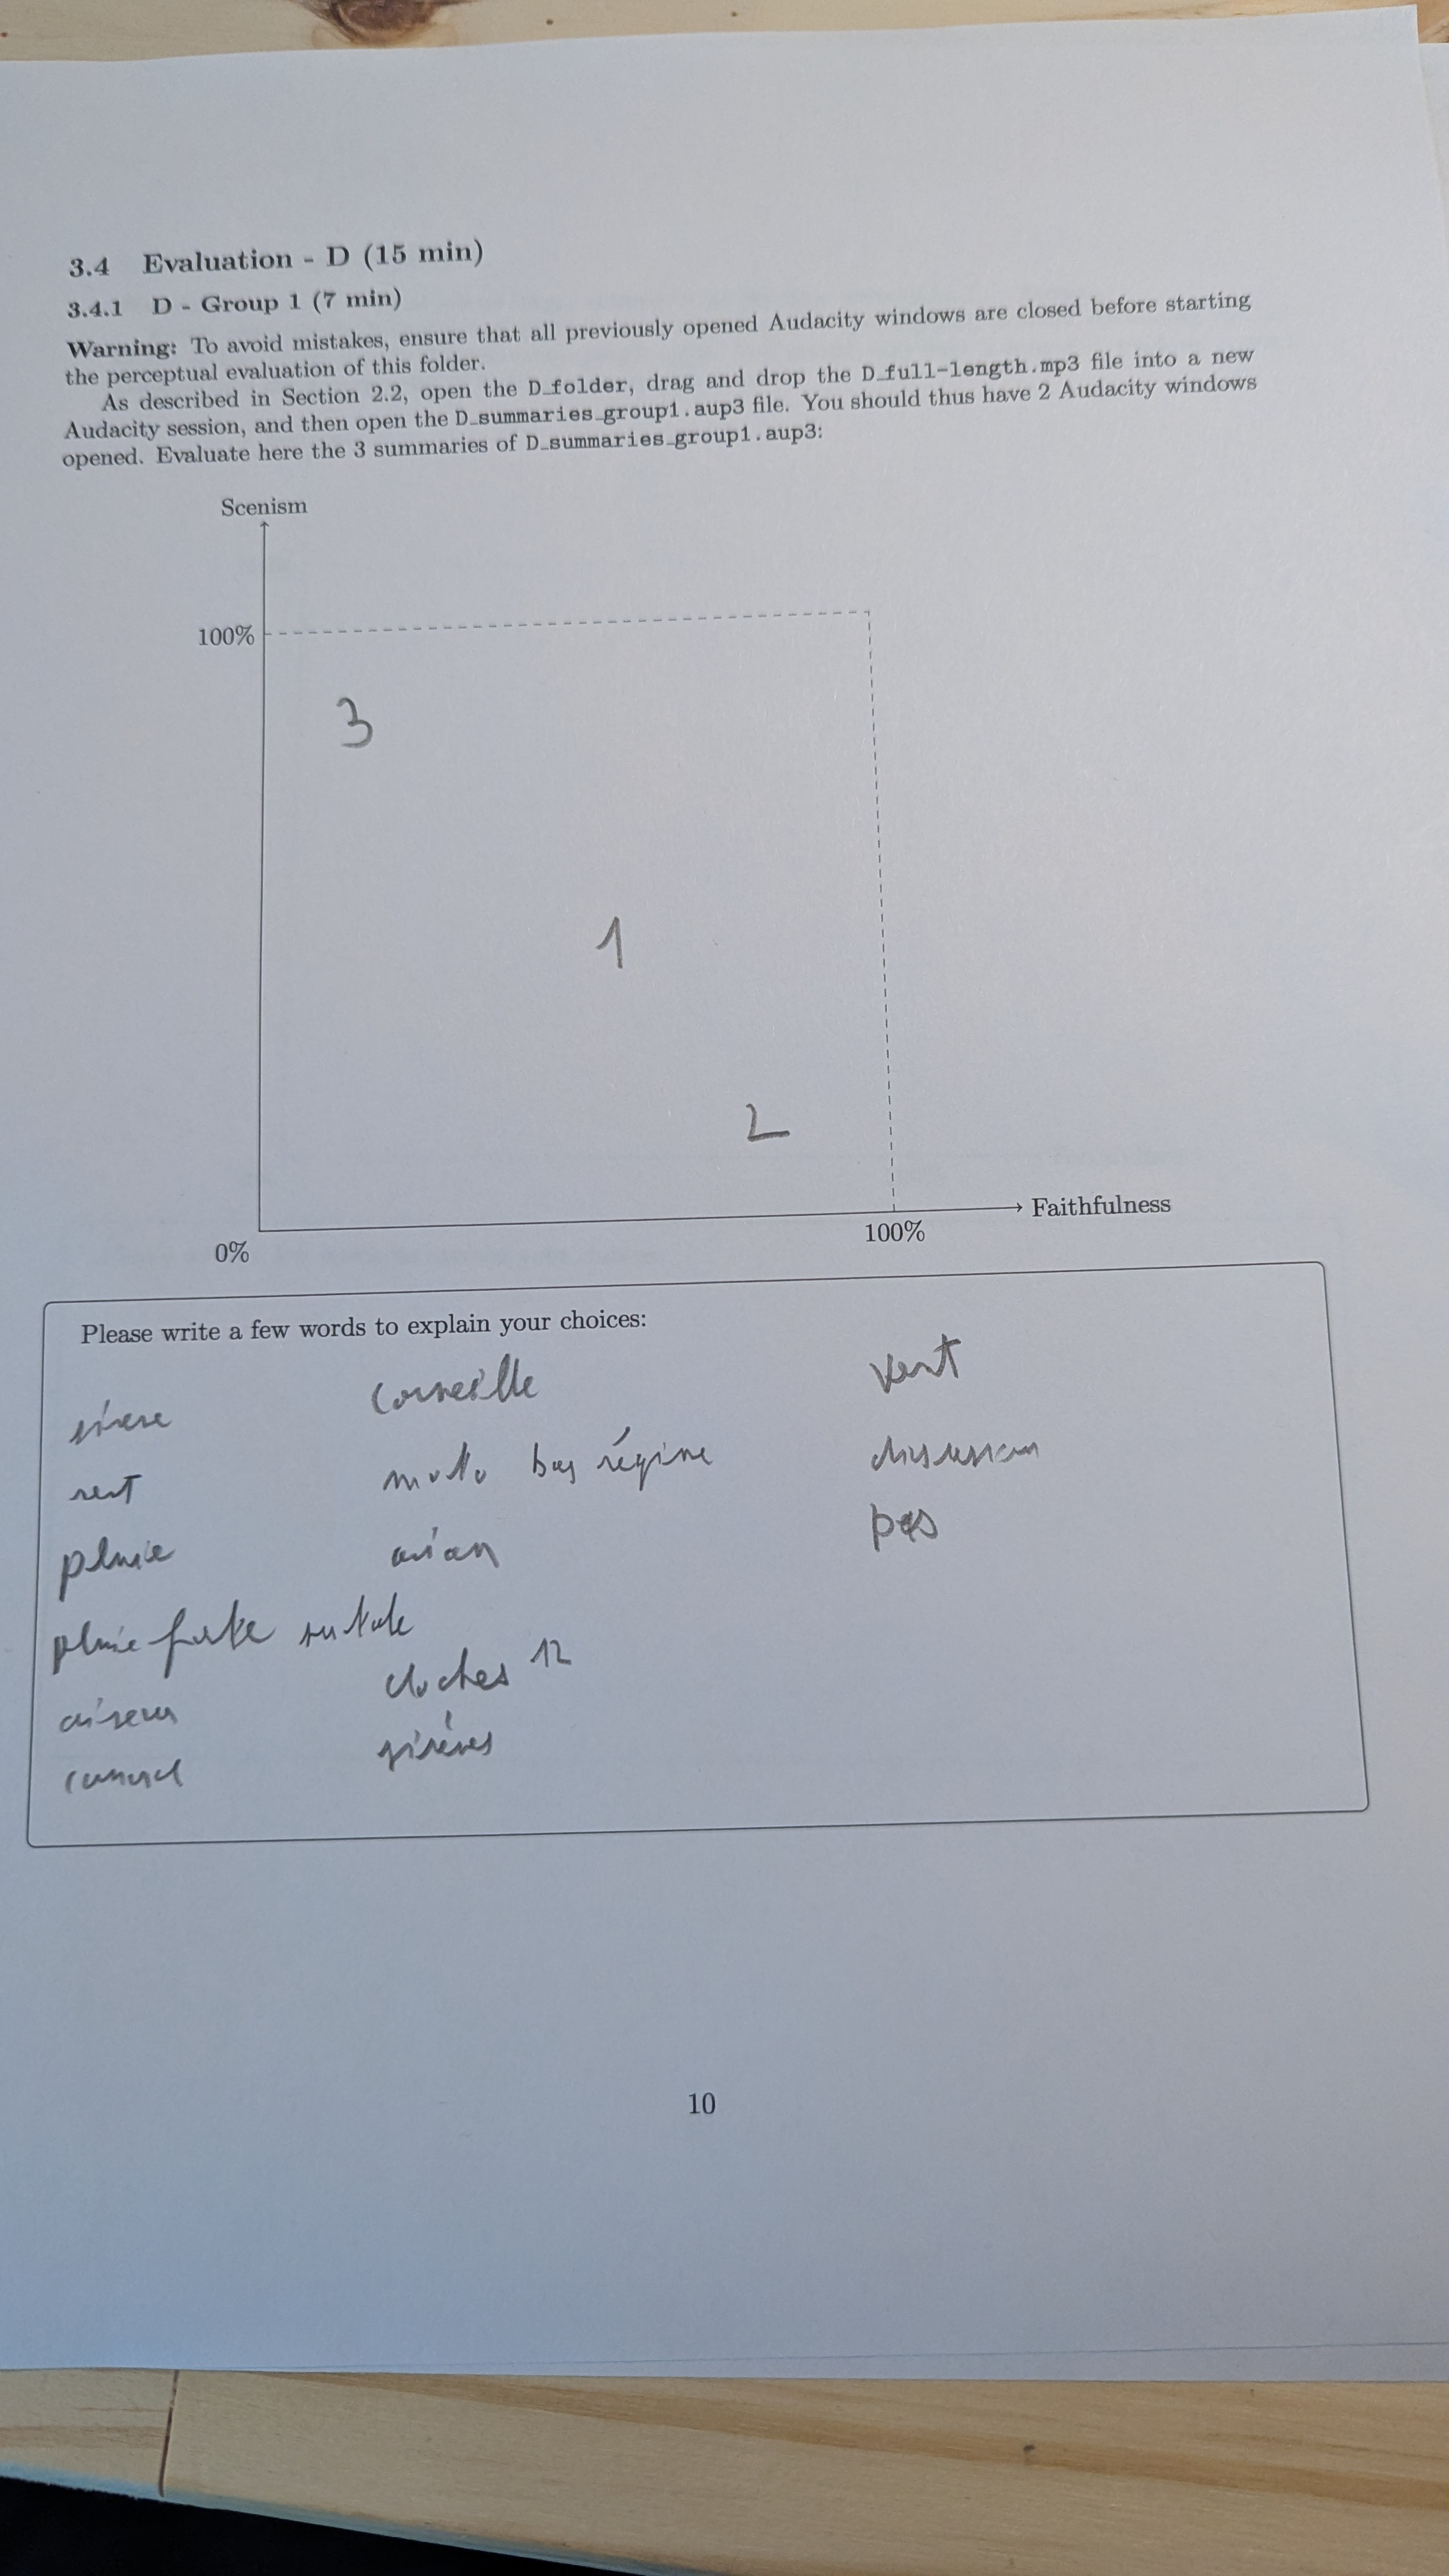 3.4 Evaluation - D (15 min)
3.4.1 D - Group 1 (7 min)
Warning: To avoid mistakes, ensure that all previously opened Audacity windows are closed before starting
the perceptual evaluation of this folder.
As described in Section 2.2, open the D_folder, drag and drop the D_full-length.mp3 file into a new
Audacity session, and then open the D_summaries_group1.aup3 file. You should thus have 2 Audacity windows
opened. Evaluate here the 3 summaries of D_summaries_group1.aup3:
Scenism
100%
3
1
2
Faithfulness
100%
0%
Please write a few words to explain your choices:
vent
pluie
pluie forte
corneille
moto bas régime
avion
cloches 12
sirènes
vent
discussion
pas
10